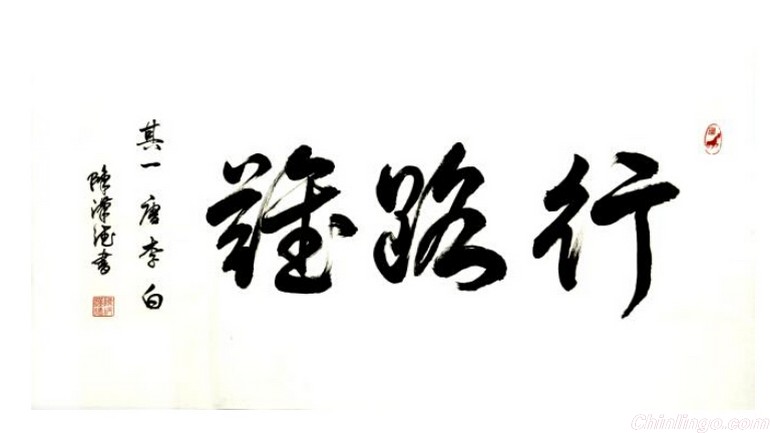 行路難
其一 唐 李白
書
Chinlingo.com